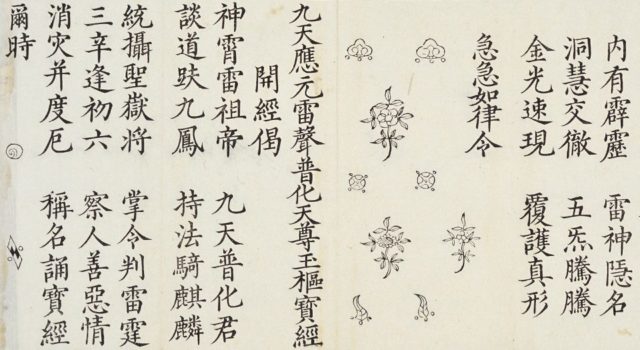 内有霹靂 雷神隠名
洞慧交徹 五炁騰騰
金光速現 覆護真形
急急如律令
九天應元雷聲普化天尊玉樞寶經
開經偈
神霄雷祖帝 九天普化君
談道趺九鳳 持法騎麒麟
統攝聖嶽將 掌令判雷霆
三辛逢初六 察人善惡情
消灾并度厄 稱名誦寶經
爾時